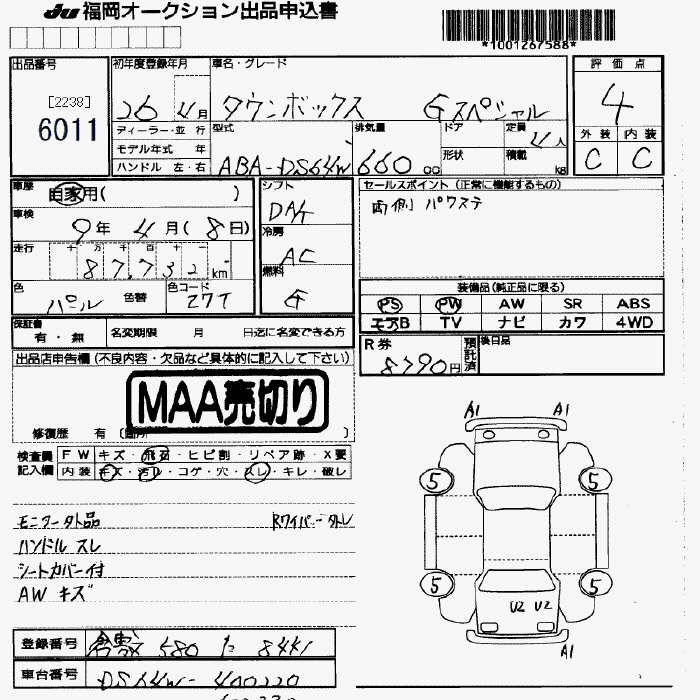 JU 福岡オークション出品申込書
*1001267588*
出品番号 初年度登録年月 車名・グレード 評価点
[2238]
6011
26 4月 タウンボックス Gスペシャル 4
ディーラー・並行 型式 排気量 ドア 定員 4人 外装 内装
モデル年式 年 形状 積載 kg
ハンドル 左・右 ABA-DS64W 660 cc C C
車歴 自家用( ) シフト セールスポイント (正常に機能するもの)
DAt 両側 パワステ
車検 9年 4月(8日) 冷房 AC
走行 十 万 千 百 十 一
87,732km 燃料 G
色 パール 色替 色コード Z7T
装備品(純正品に限る)
PS PW AW SR ABS
エアB TV ナビ カワ 4WD
保証書 有・無 名変期限 月 日迄に名変できる方
R券 8790円 預託済 後日品
出品店申告欄(不良内容・欠品など具体的に記入して下さい)
MAA売切り
修復歴 有 (箇所 )
検査員 FW キズ・飛石・ヒビ割・リペア跡・X要
記入欄 内装 キズ・汚れ・コゲ・穴・スレ・キレ・破レ
A1 A1
5 5
モニター外品 Rワイパー外し
ハンドル スレ
シートカバー付
AW キズ
5 5
U2 U2
A1
登録番号 倉敷 580 た 8441
車台番号 DS64W-400220